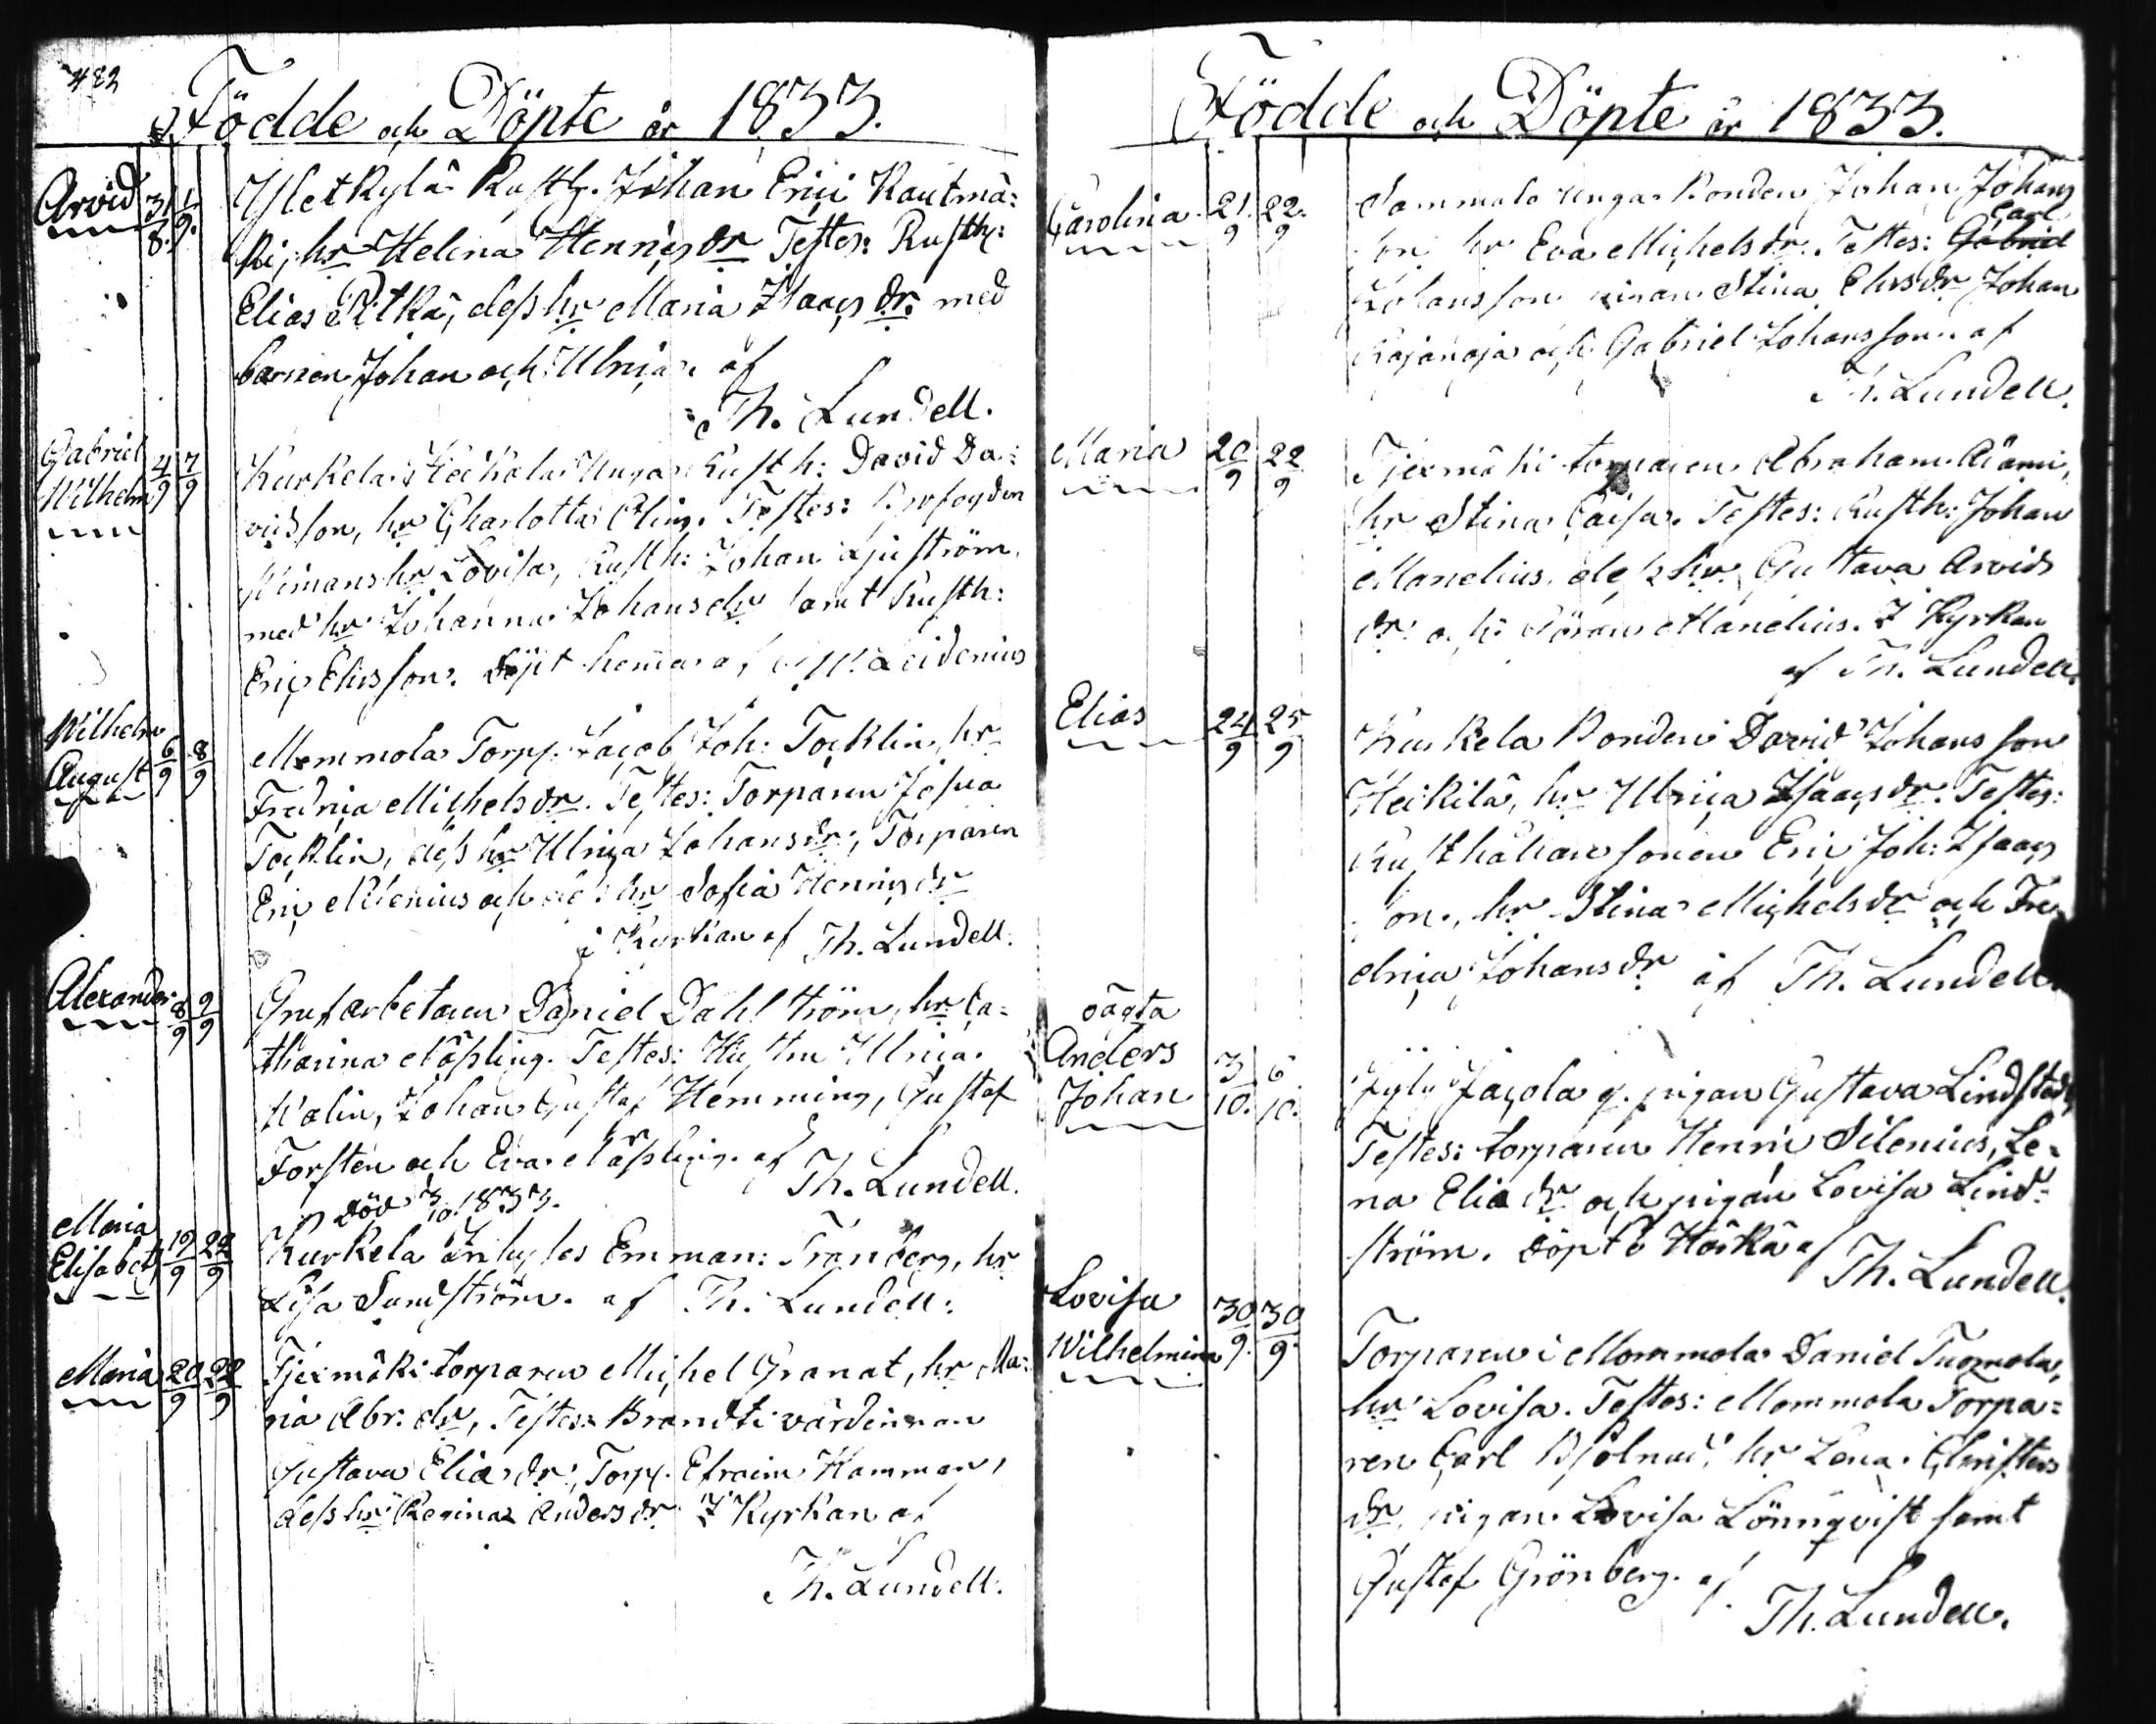 482
Födde och Döpte år 1833.
Arvid 31/8. 1/9. Yletkylä Rusth. Johan Erici Kautmä=
ki, hr Helena Henricsdr Testes: Rusth:
Elias Pitkä, dess hr Maria Isaacsdr. med
barnen Johan och Ulrica. af
Th. Lundell.
Gabriel Wilhelm 4/9 7/9 Kurkela Heikola Unga Rusth: David Da=
vidsson, hr Charlotta Testes:
hr Lovisa, Rusth: Johan
med hr Johanna Johansdr samt Rusth:
Eric Elisson. Döpt hemma af Leidenius
Wilhelm August 6/9 8/9 Mommola Torp. Jacob Joh: Tocklin, hr
Fredrica Michelsdr. Testes: Torparen Josua
Tocklin, dess hr Ulrica Johansdr, Torparen
Eric och dess hr Sofia Henricsdr
i Kyrkan af Th. Lundell.
Alexander 8/9 9/9 Grufarbetaren Daniel Dahlström, hr Ca=
tharina Nässling. Testes: Hustru Ulrica
Johan Gustaf Hemming, Gustaf
Forsten och Eva Nässling. af Th. Lundell.
död 3/10. 1833.
Maria Elisabeth 19/9 22/9 Kurkela Inhyses Emman: Tranberg, hr
Lisa Sundström. af Th. Lundell.
Maria 20/9 22/9 Tjermäki torparen Michel Granat, hr Ma=
ria Abr: dr, Testes: Brandti värdinnan
Gustava Eliedr, Torp. Efraim Hamman,
dess hr Regina Andersdr. I Kyrkan af
Th. Lundell.
Födde och Döpte år 1833.
Carolina 21/9 22/9 Sammalo unga Bonden Johan Johans
son hr Eva Michelsdr. Testes: Gabriel Carl
Johansson pigan Stina Eliedr Johan
Rajanoja och Gabriel Johansson. af
Th. Lundell.
Maria 20/9 22/9 Tjermäki torparen Abraham
hr Stina Caisa. Testes: Rusth: Johan
Manelius, dess hr Gustava Arvids
dr. och Göran Manelius. I Kyrkan
af Th. Lundell.
Elias 24/9 25/9 Kurkela Bonden David Johansson
Heikilä, hr Ulrica Isaacsdr. Testes:
Rusthållare sonen Eric Joh: Isaacs
son, hr Stina Michelsdr och Fre
drica Johansdr af Th. Lundell.
oägta
Anders Johan 3/10. 6/10. Jacola q. pigan Gustava Lindstedt,
Testes: torparen Henric Silenius, Le=
na Eliedr och pigan Lovisa Lind=
ström. döpt i Härkä af Th. Lundell.
Lovisa Wilhelmina 30/9. 30/9. Torparen i Mommola Daniel Tuomola,
hr Lovisa. Testes: Mommola Torpa=
ren Carl hr Lena Christers
dr, pigan Lovisa Lönnqvist samt
Gustaf Grönberg. af
Th. Lundell.